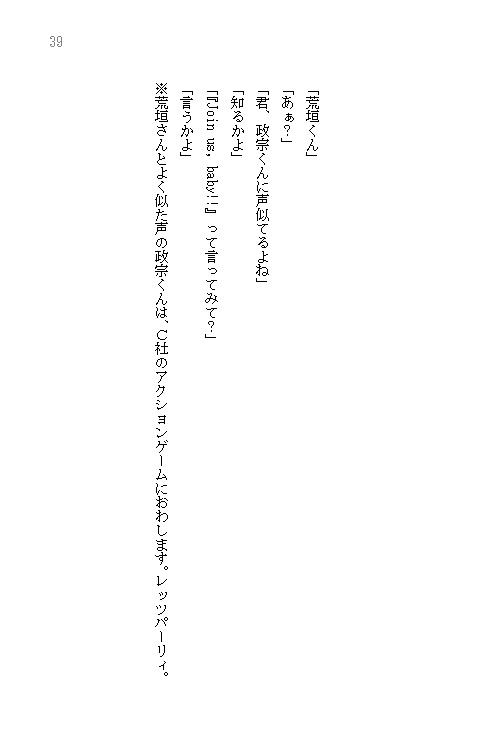 39
「荒垣くん」
「あぁ？」
「君、政宗くんに声似てるよね」
「知るかよ」
「『Join us, baby!!』って言ってみて？」
「言うかよ」
※荒垣さんとよく似た声の政宗くんは、Ｃ社のアクションゲームにおわします。レッツパーリィ。